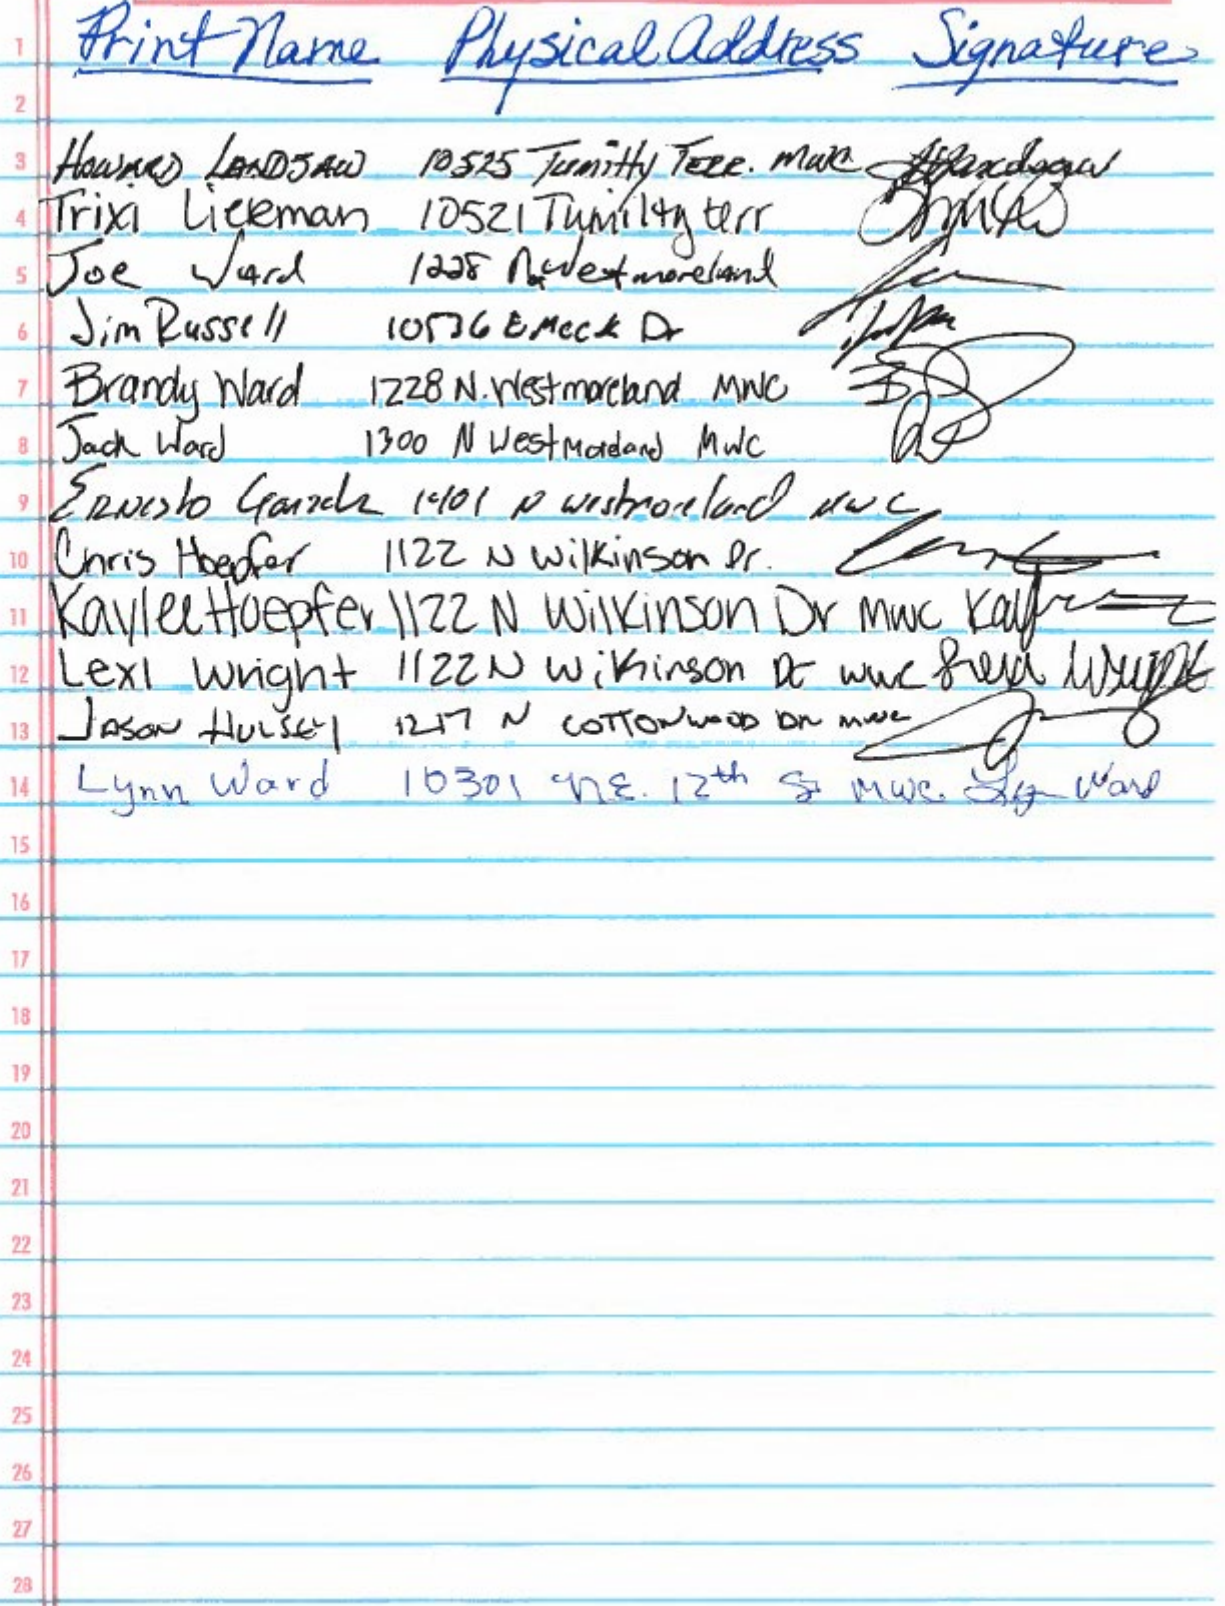 1 Print Name Physical Address Signature
2
3 Howard Landsaw 10525 Tumilty Terr. MWC
4 Trixi Lieeman 10521 Tumilty terr
5 Joe Ward 1228 N. Westmoreland
6 Jim Russell 10536 E Meck Dr
7 Brandy Ward 1228 N. Westmoreland MWC
8 Jack Ward 1300 N Westmoreland MWC
9 Ernesto 1401 N westmoreland MWC
10 Chris Hoepfer 1122 N Wilkinson Dr.
11 Kaylee Hoepfer 1122 N Wilkinson Dr MWC
12 Lexi Wright 1122 N Wilkinson Dr MWC Lexi Wright
13 Jason Hulsey 1217 N Cottonwood DR MWC
14 Lynn Ward 10301 N.E. 12th St MWC. Lynn Ward
15
16
17
18
19
20
21
22
23
24
25
26
27
28